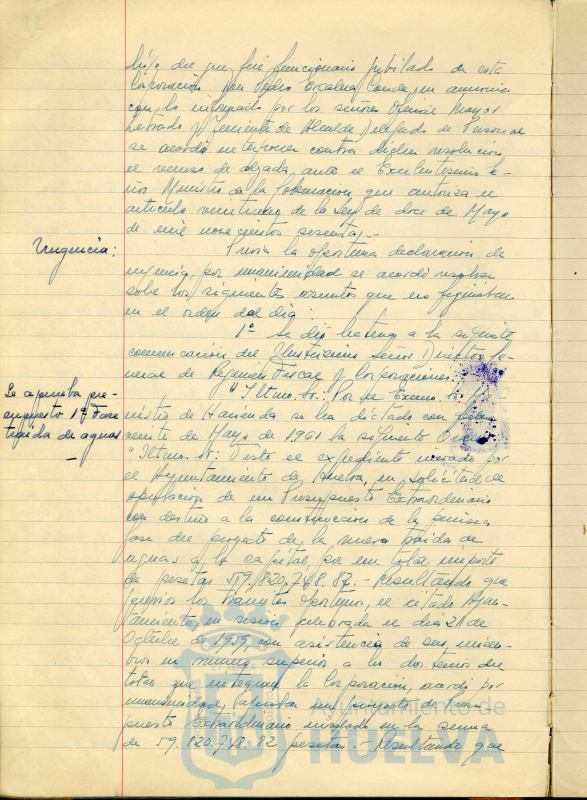 hijo del que fué funcionario jubilado de esta
Corporación Don Pedro Escalera Conde, en armonía
con lo informado por los señores Oficial Mayor
Letrado y Teniente de Alcalde Delegado de Personal
se acordó interponer contra dicha resolución
el recurso de alzada, ante el Excelentísimo Se-
ñor Ministro de la Gobernación que autoriza el
artículo veintiuno de la Ley de doce de Mayo
de mil novecientos sesenta.-
Urgencia:
Previa la oportuna declaración de
urgencia, por unanimidad se acordó resolver
sobre los siguientes asuntos que no figuraban
en el orden del dia:
1º Se dió lectura a la siguiente
comunicación del Ilustrísimo Señor Director Ge-
neral de Régimen Fiscal y Corporaciones:
Se aprueba pre-
supuesto 1ª Fase
traida de aguas
-
"Iltmo. Sr.: Por el Excmo. Sr. Mi-
nistro de Hacienda se ha dictado con fecha
de Mayo de 1961 la siguiente Orden:
"Iltmo. Sr: Visto el expediente incoado por
el Ayuntamiento de Huelva, en solicitud de
aprobación de un Presupuesto Extraordinario
con destino a la construcción de la primera
fase del proyecto de la nueva traida de
aguas a la capital, por un total importe
de pesetas 59.820.748.82.- Resultando que
previos los trámites oportunos, el citado Ayun-
tamiento, en sesión celebrada el dia 21 de
Octubre de 1959, con asistencia de sus miem-
bros en número superior a los dos tercios del
total que integran la Corporación, acordó por
unanimidad, aprobar un proyecto de Presu-
puesto Extraordinario nivelado en la suma
de 59.820.748.82 pesetas.- Resultando que
Ayuntamiento de
HUELVA